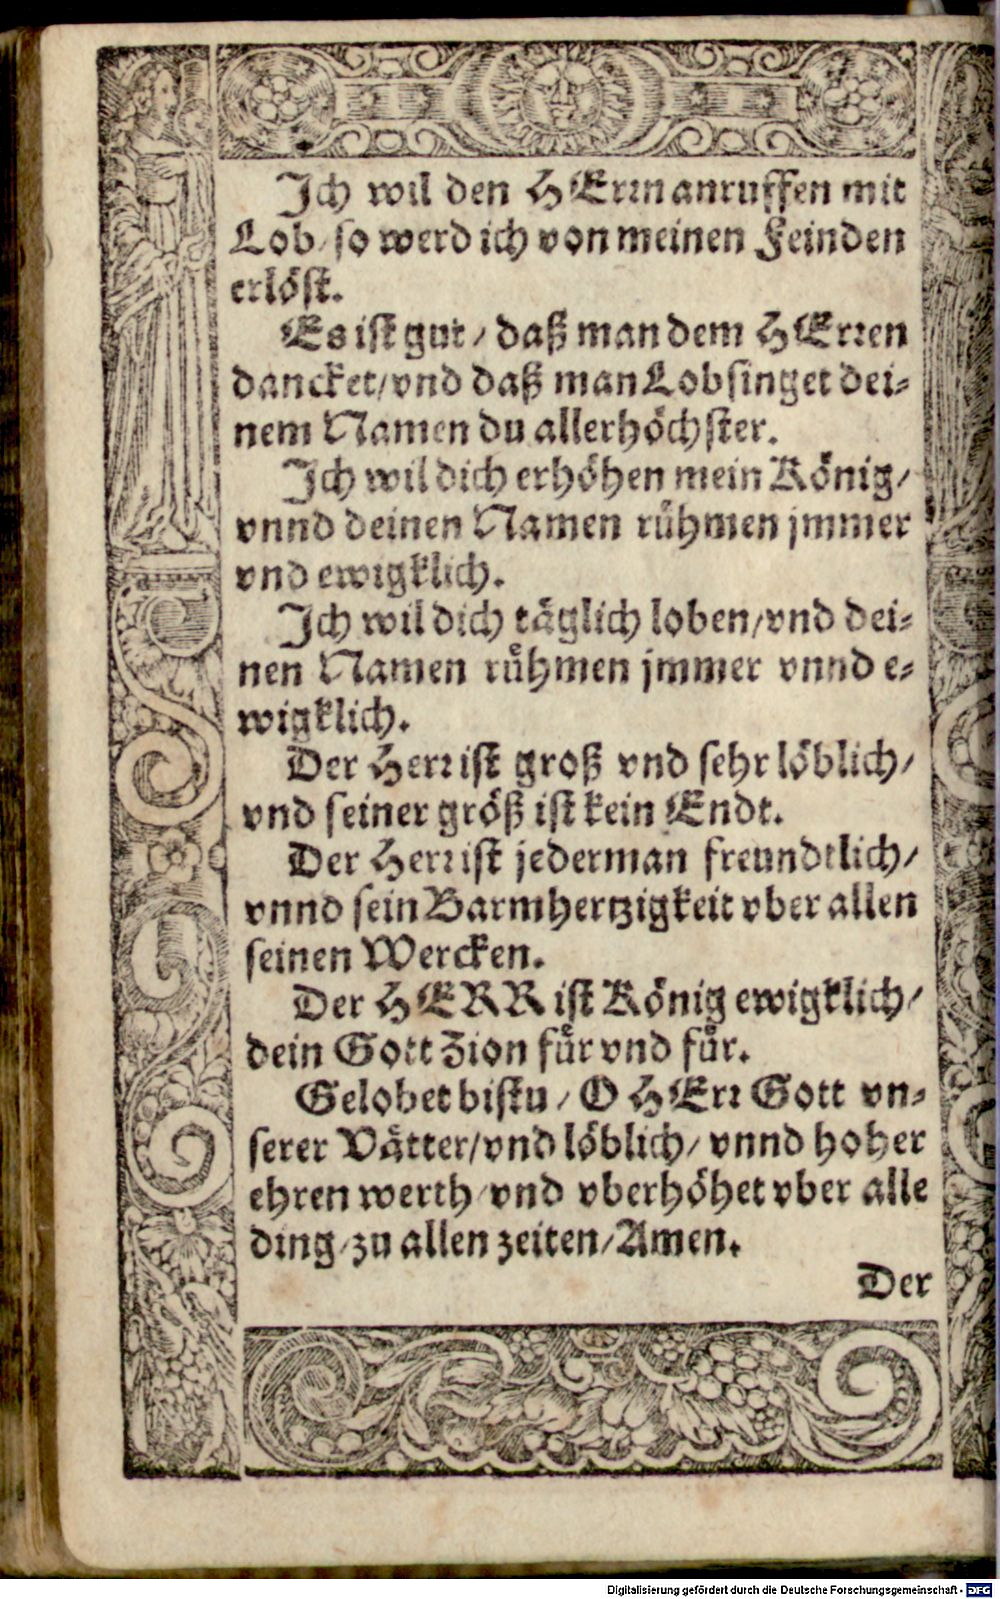 Ich wil den HErrn anruffen mit
Lob/ so werd ich von meinen Feinden
erlöst.
Es ist gut/ daß man dem HErren
dancket/ vnd daß man Lobsinget dei-
nem Namen du allerhöchster.
Ich wil dich erhöhen mein König/
vnnd deinen Namen rühmen jmmer
vnd ewigklich.
Ich wil dich täglich loben/ vnd dei-
nen Namen rühmen jmmer vnnd e-
wigklich.
Der Herr ist groß vnd sehr löblich/
vnd seiner größ ist kein Endt.
Der Herr ist jederman freundtlich/
vnnd sein Barmhertzigkeit vber allen
seinen Wercken.
Der HERR ist König ewigklich/
dein Gott Zion für vnd für.
Gelobet bistu/ O HErr Gott vn-
serer Vätter/ vnd löblich/ vnnd hoher
ehren werth/ vnd vberhöhet vber alle
ding/ zu allen zeiten/ Amen.
Der
Digitalisierung gefördert durch die Deutsche Forschungsgemeinschaft - DFG